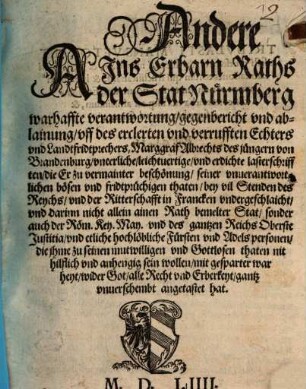 2
Andere
Ains Erbarn Raths
der Stat Nürmberg
warhaffte verantwortung/gegenbericht vnd ab-
lainung/vff des erclerten vnd verrufften Echters
vnd Landtfridtprechers, Marggraf Albrechts des jüngern von
Brandenburg/vnterliche/leichtuertige/vnd erdichte lasterschriff
ten/die Er zu vermainter beschönung/ seiner vnuerantwort-
lichen bösen vnd fridtprüchigen thaten/ bey vil Stenden des
Reychs/vnd der Ritterschafft in Francken vndergeschlaicht/
vnd darinn nicht allein ainen Rath bemelter Stat/ sonder
auch der Röm. Key. May. vnd des gantzen Reichs Oberste
Justitia/vnd etliche hochlöbliche Fürsten vnd Adels personen/
die jhme zu seinen mutwilligen vnd Gottlosen thaten nit
hilflich vnd anhengig sein wollen/mit gesparter war
heyt/wider Got/alle Recht vnd Erberkeyt/gantz
vnuerschembt angetastet hat.
M. D. LIIII.